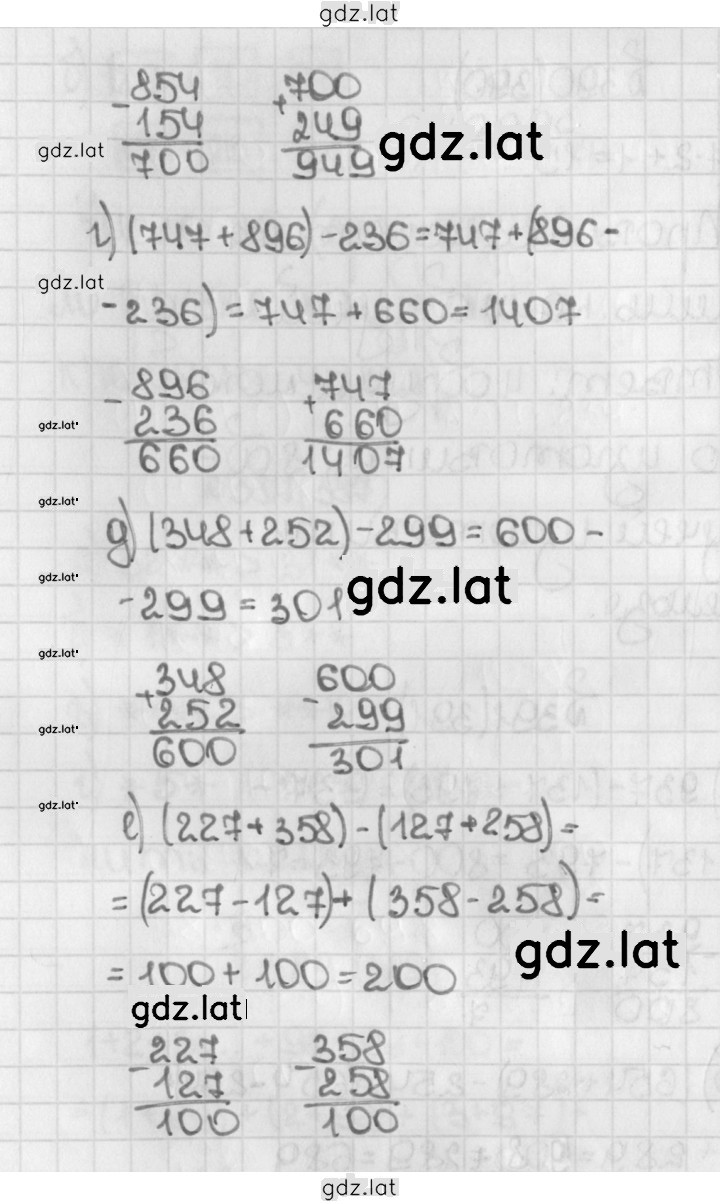 gdz.lat
-854 +700
154 249
gdz.lat 700 949 gdz.lat
г) (747+896)-236=747+(896-
gdz.lat
-236)=747+660=1407
-896 +747
gdz.lat 236 660
660 1407
gdz.lat
д) (348+252)-299=600-
gdz.lat
-299=301 gdz.lat
gdz.lat
+348 -600
gdz.lat 252 299
600 301
gdz.lat
е) (227+358)-(127+258)=
=(227-127)+(358-258)=
gdz.lat
=100+100=200
gdz.lat
-227 -358
127 258
100 100
gdz.lat